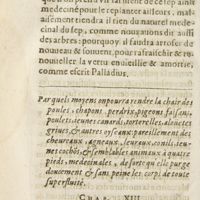 qu'on prend vn sarment de ce sep ainsi
medeciné pour le copianter ailleurs, mal-
aisément tiendra il rien du naturel mede-
cinal du sep, comme nous auons dit aussi
des arbres: pourquoy il faudra arroser de
nouueau & souuent, pour rafraischir & re-
nouueller la vertu enuieillie & amortie,
comme escrit Palladius.
Par quels moyens on pourra rendre la chair des
poulets, chapons, perdrix, pigeons, faisans,
poulets, ieunes canards, tortorelles, alouëtes,
griues & autres oyseaux: pareillement des
cheureaux, agneaux, leuraux, conils, ieu-
nes cochós, & semblables animaux à quatre
pieds, medecinales, de sorte qu'elle purge
doucement & sans peine les corps de toute
superfluité.
CHAP. XII.